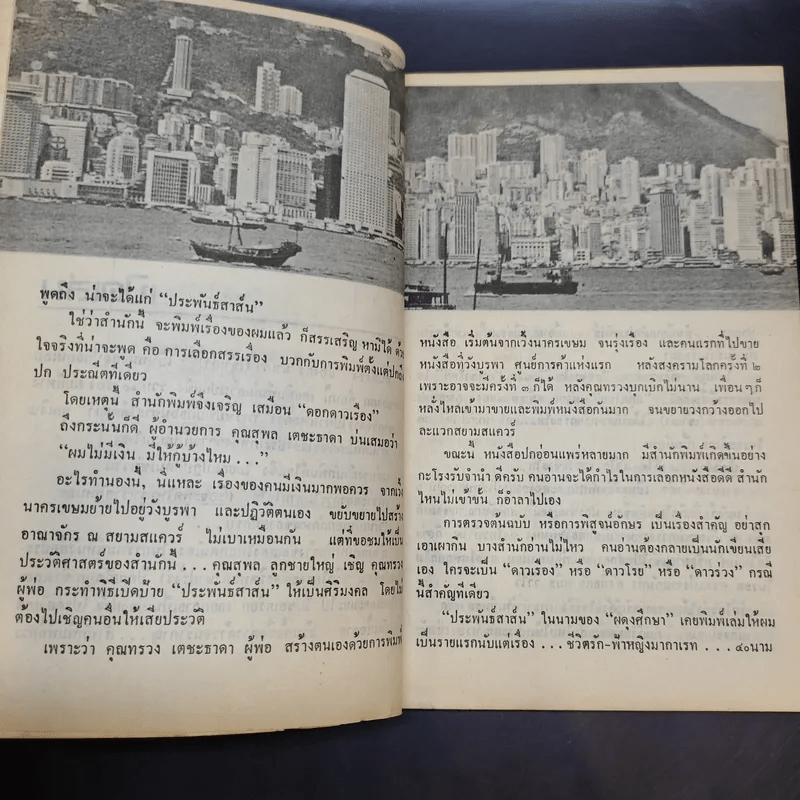 พูดถึง น่าจะได้แก่ “ประพันธ์สาส์น”
ใช่ว่าสำนักนี้ จะพิมพ์เรื่องของผมแล้ว ก็สรรเสริญ หามิได้ ด้วย
ใจจริงที่น่าจะพูด คือ การเลือกสรรเรื่อง บวกกับการพิมพ์ตั้งแต่ปกถึง
ปก ประณีตทีเดียว
โดยเหตุนี้ สำนักพิมพ์จึงเจริญ เสมือน “ดอกดาวเรือง”
ถึงกระนั้นก็ดี ผู้อำนวยการ คุณสุพล เตชะธาดา บ่นเสมอว่า
“ผมไม่มีเงิน มีให้กู้บ้างไหม . . .”
อะไรทำนองนี้, นี่แหละ เรื่องของคนมีเงินมากพอควร จากเวิ้ง
นาครเขษมย้ายไปอยู่วังบูรพา และปฏิวัติตนเอง ขยับขยายไปสร้าง
อาณาจักร ณ สยามสแควร์ ไม่เบาเหมือนกัน แต่ที่ขอชมให้เป็น
ประวัติศาสตร์ของสำนักนี้ . . . คุณสุพล ลูกชายใหญ่ เชิญ คุณทรวง
ผู้พ่อ กระทำพิธีเปิดป้าย “ประพันธ์สาส์น” ให้เป็นศิริมงคล โดยไม่
ต้องไปเชิญคนอื่นให้เสียประวัติ
เพราะว่า คุณทรวง เตชะธาดา ผู้พ่อ สร้างตนเองด้วยการพิมพ์
หนังสือ เริ่มต้นจากเวิ้งนาครเขษม จนรุ่งเรือง และคนแรกที่ไปขาย
หนังสือที่วังบูรพา ศูนย์การค้าแห่งแรก หลังสงครามโลกครั้งที่ ๒
เพราะอาจจะมีครั้งที่ ๓ ก็ได้ หลังคุณทรวงบุกเบิกไม่นาน เพื่อนๆก็
หลั่งไหลเข้ามาขายและพิมพ์หนังสือกันมาก จนขยายวงกว้างออกไป
ละแวกสยามสแควร์
ขณะนี้ หนังสือปกอ่อนแพร่หลายมาก มีสำนักพิมพ์เกิดขึ้นอย่าง
กะโรงรับจำนำ ดีครับ คนอ่านจะได้กำไรในการเลือกหนังสือดีดี สำนัก
ไหนไม่เข้าขั้น ก็อำลาไปเอง
การตรวจต้นฉบับ หรือการพิสูจน์อักษร เป็นเรื่องสำคัญ อย่าสุก
เอาเผากิน บางสำนักอ่านไม่ไหว คนอ่านต้องกลายเป็นนักเขียนเสีย
เอง ใครจะเป็น “ดาวเรือง” หรือ “ดาวโรย” หรือ “ดาวร่วง” กรณี
นี้สำคัญทีเดียว
“ประพันธ์สาส์น” ในนามของ “ผดุงศึกษา” เคยพิมพ์เล่มให้ผม
เป็นรายแรกนับแต่เรื่อง . . . ชีวิตรัก-ฟ้าหญิงมากาเรท . . . ๔๐นาม